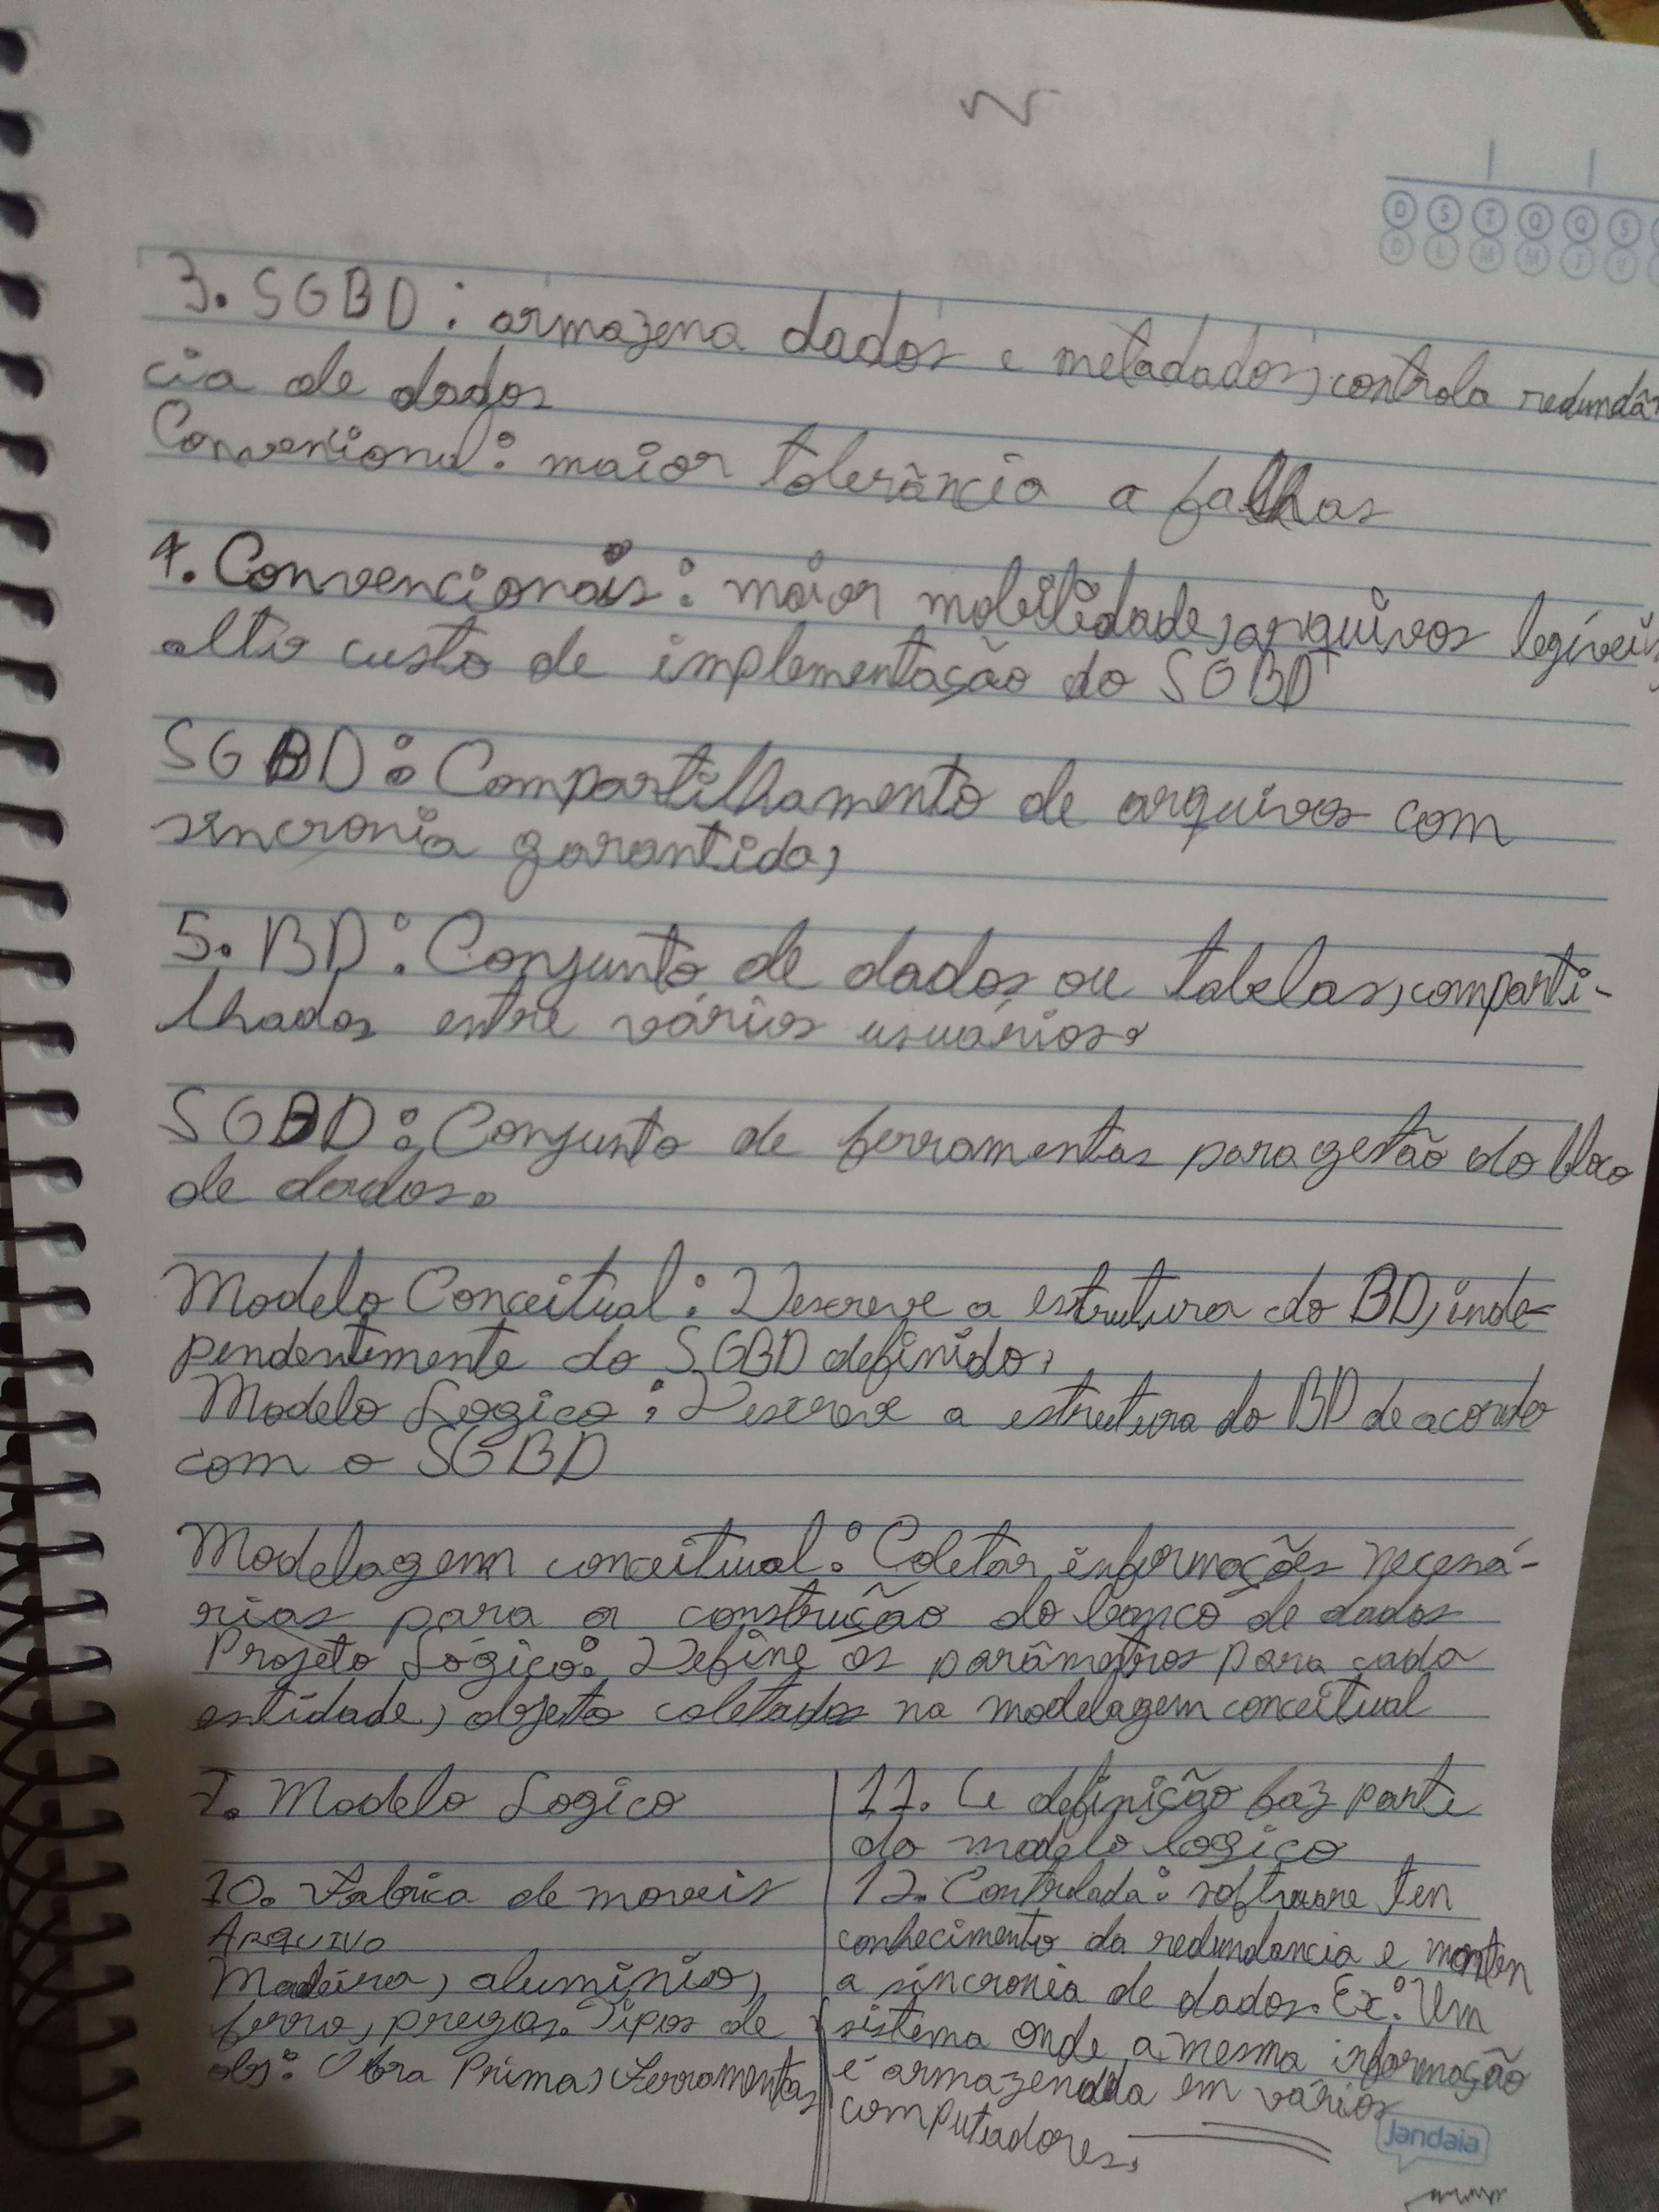 N
D S T Q Q S
D L M M J V
3. SGBD: armazena dados e metadados, controla redundân
cia de dados
Convencional: maior tolerância a falhas
4. Convencionais: maior mobilidade, arquivos legíveis,
alto custo de implementação do SGBD
SGBD: Compartilhamento de arquivos com
sincronia garantida,
5. BD: Conjunto de dados ou tabelas, comparti-
lhados entre vários usuários.
SGBD: Conjunto de ferramentas para gestão do
de dados.
Modelo Conceitual: Descreve a estrutura do BD, inde-
pendentemente do SGBD definido,
Modelo Logico: Descreve a estrutura do BD de acordo
com o SGBD
Modelagem conceitual: Coletar informações necesá-
rias para a construção do banco de dados
Projeto Lógico: Define os parâmetros para cada
entidade, objeto coletados na modelagem conceitual
7. Modelo Logico
10. Fabrica de moveis
ARQUIVO
Madeira, aluminio,
ferro, pregos. Tipos de
obj: Obra Prima, Ferramentas
11. definição faz parte
do modelo logico
12. Controlada: software tem
conhecimento da redundancia e mantem
a sincronia de dados. Ex: Um
sistema onde a mesma informação
é armazenada em vários
computadores.
jandaia